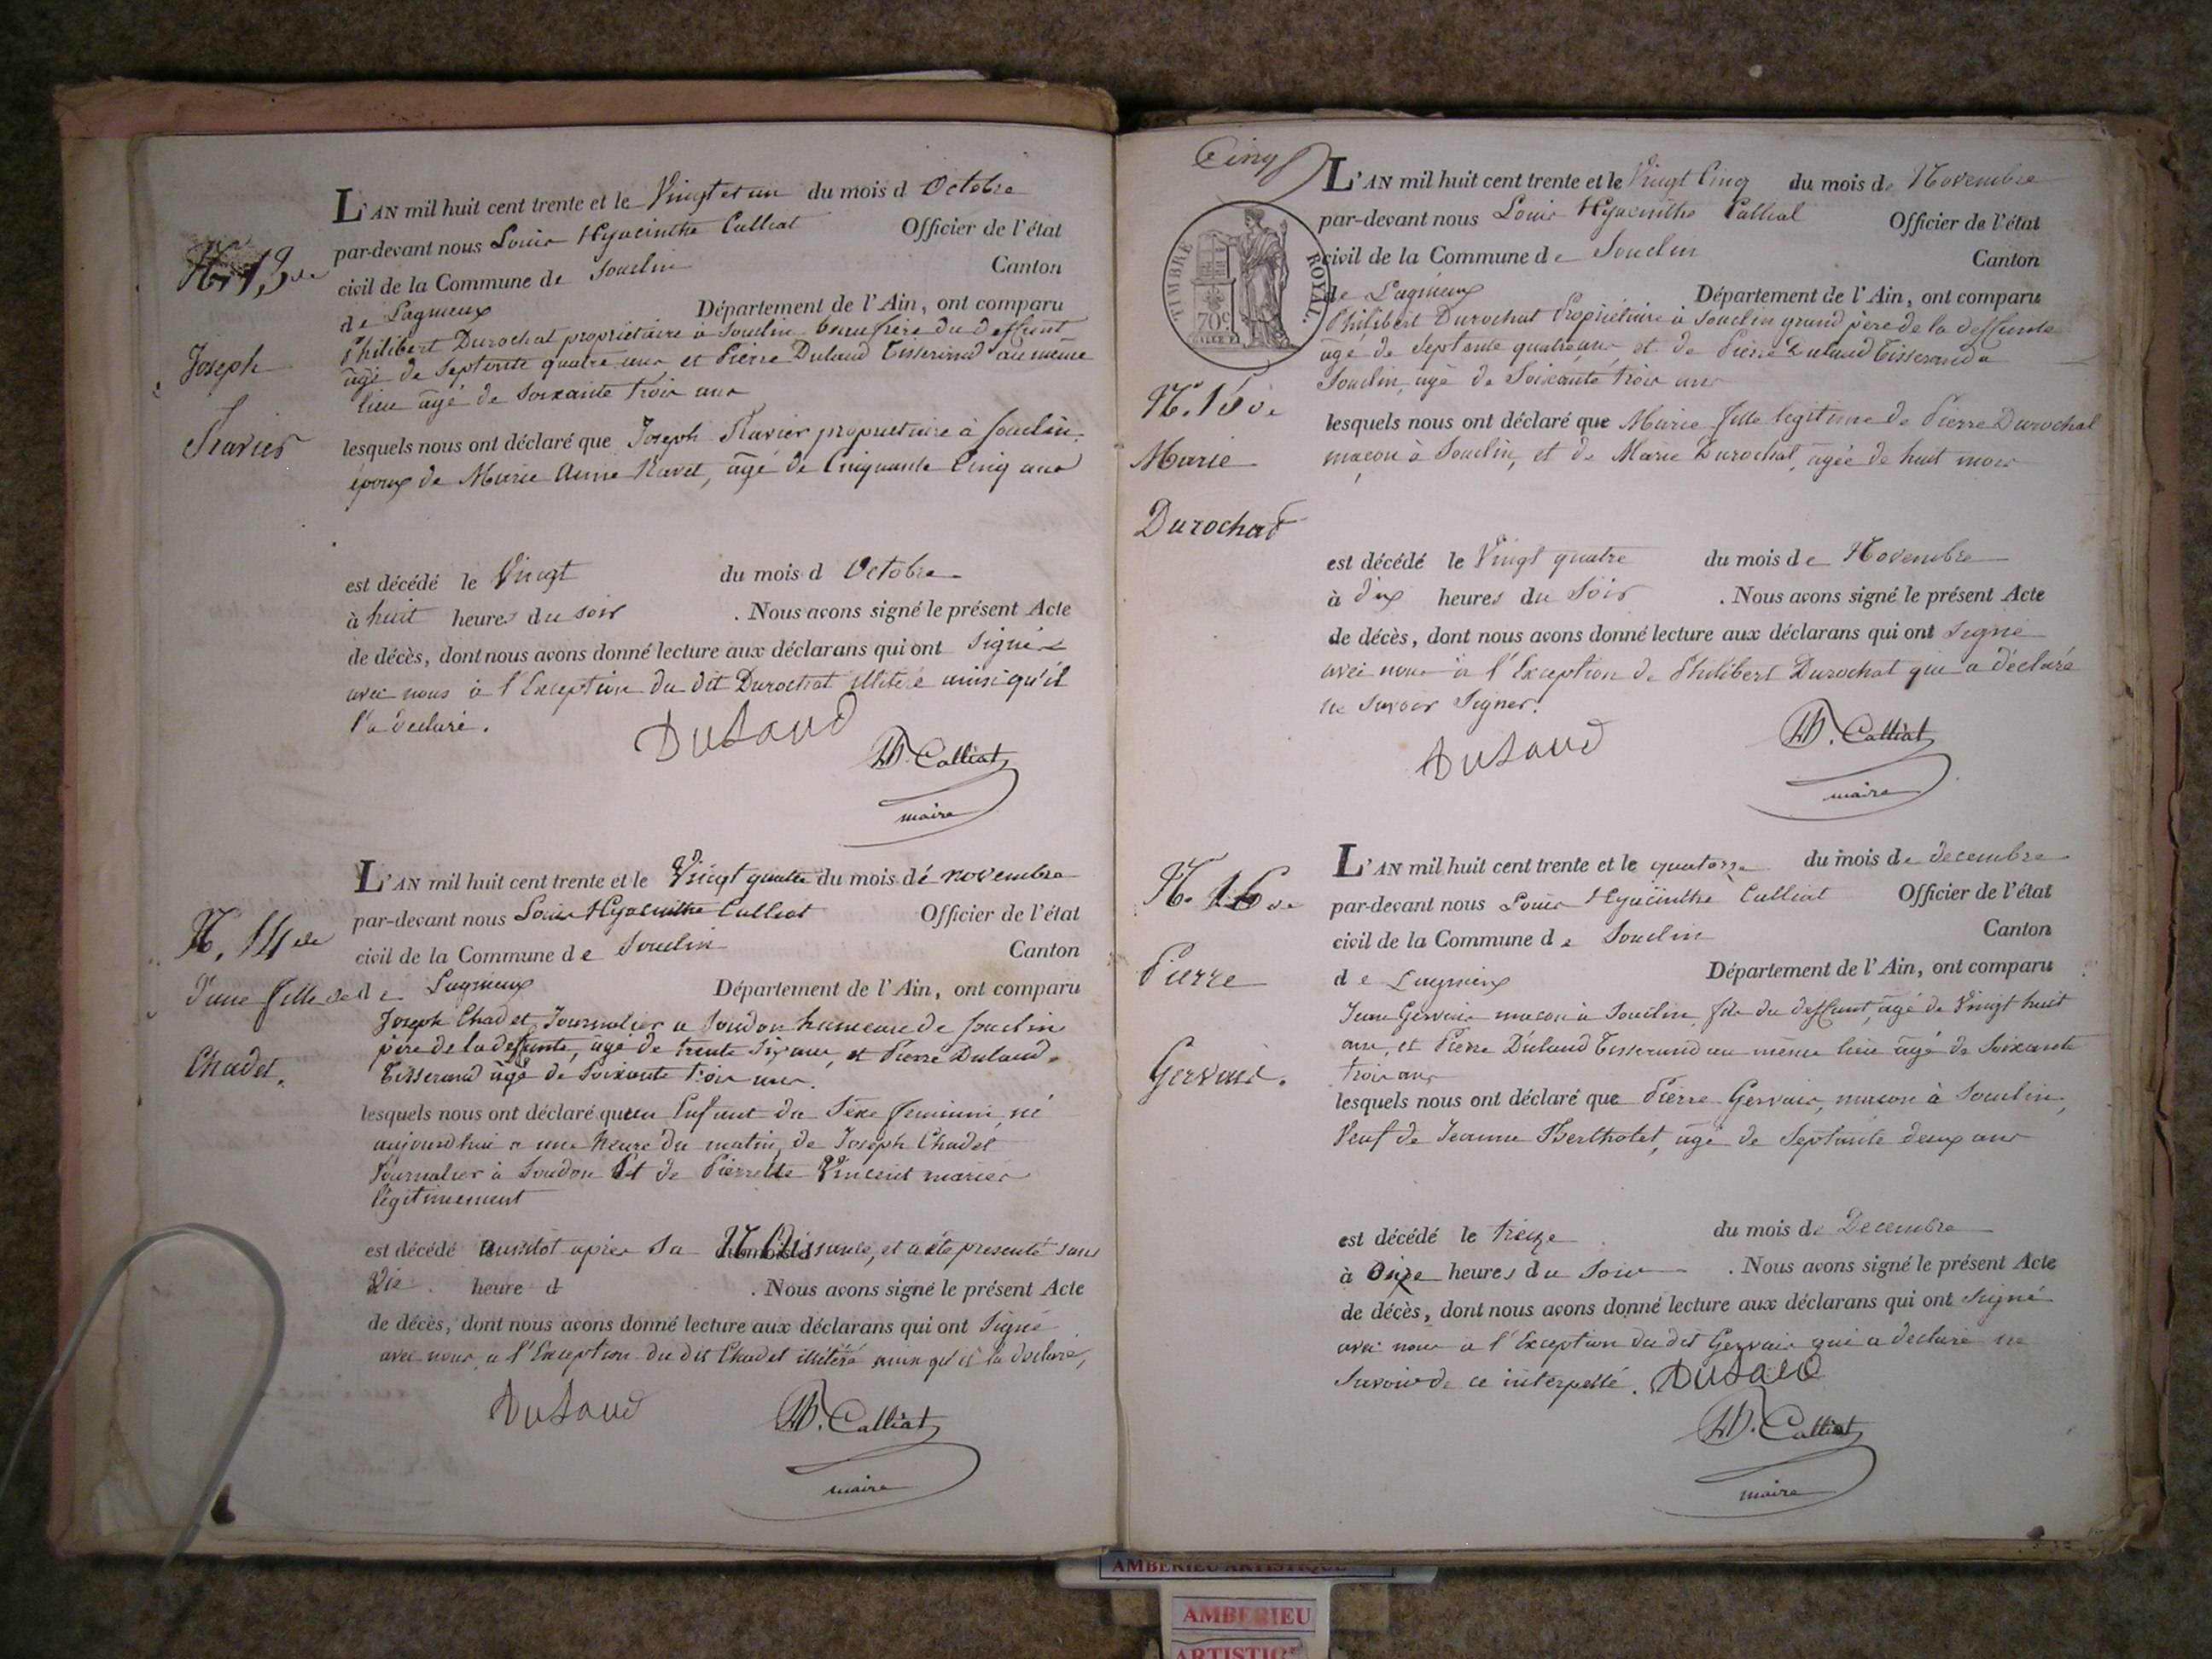 N. 13 de
Joseph
Ravier
L'AN mil huit cent trente et le Vingt et un du mois d Octobre
par-devant nous Louis Hyacinthe Calliat Officier de l'état
civil de la Commune de Souclin Canton
de Lagnieux Département de l'Ain, ont comparu
Philibert Durochat propriétaire à Souclin beau frère du deffunt
âgé de Septente quatre ans, et Pierre Dulaud Tisserand au même
lieu âgé de Soixante trois ans
lesquels nous ont déclaré que Joseph Ravier propriétaire à Souclin,
époux de Marie Anne Ravet, âgé de Cinquante Cinq ans
est décédé le Vingt du mois d Octobre
à huit heures du soir . Nous avons signé le présent Acte
de décès, dont nous avons donné lecture aux déclarans qui ont signé
avec nous à l'Exception du dit Durochat illitéré ainsi qu'il
l'a déclaré.
Dulaud
LH. Calliat
maire
N. 14 de
d'une fille de
Chadet.
L'AN mil huit cent trente et le Vingt quatre du mois de novembre
par-devant nous Louis Hyacinthe Calliat Officier de l'état
civil de la Commune de Souclin Canton
de Lagnieux Département de l'Ain, ont comparu
Joseph Chadet, Journalier a Soudon hameau de Souclin
père de la deffunte, âgé de trente Six ans, et Pierre Dulaud,
Tisserand âgé de Soixante trois ans.
lesquels nous ont déclaré qu'un Enfant du Sèxe féminin, né
aujourd'hui a une heure du matin, de Joseph Chadet
Journalier à Soudon Et de Pierrette Vincent mariés
légitimement
est décédé aussitôt après Sa Naissance, et a été présenté sans
Vie. heure d . Nous avons signé le présent Acte
de décès, dont nous avons donné lecture aux déclarans qui ont Signé
avec nous, a l'Exception du dit Chadet illitéré ainsi qu'il la déclaré,
Dulaud
LH. Calliat
maire
Cinq
TIMBRE ROYAL.
70c
N. 15 de
Marie
Durochat
L'AN mil huit cent trente et le Vingt Cinq du mois de Novembre
par-devant nous Louis Hyacinthe Calliat Officier de l'état
civil de la Commune de Souclin Canton
de Lagnieux Département de l'Ain, ont comparu
Philibert Durochat Propriétaire à Souclin grand père de la deffunte
âgé de Septente quatre ans, et de Pierre Dulaud Tisserand a
Souclin, âgé de Soixante trois ans
lesquels nous ont déclaré que Marie fille légitime de Pierre Durochat
maçon à Souclin, et de Marie Durochat, âgée de huit mois
est décédé le Vingt quatre du mois de Novembre
à dix heures du Soir . Nous avons signé le présent Acte
de décès, dont nous avons donné lecture aux déclarans qui ont signé
avec nous à l'Exception de Philibert Durochat qui a déclaré
ne savoir Signer.
Dulaud
LH. Calliat
maire
N. 16 de
Pierre
Gervais.
L'AN mil huit cent trente et le quatorze du mois de decembre
par-devant nous Louis Hyacinthe Calliat Officier de l'état
civil de la Commune de Souclin Canton
de Lagnieux Département de l'Ain, ont comparu
Jean Gervais maçon à Souclin, fils du deffunt, âgé de Vingt huit
ans, et Pierre Dulaud Tisserand au même lieu âgé de Soixante
trois ans
lesquels nous ont déclaré que Pierre Gervais, maçon à Souclin,
Veuf de Jeanne Bertholet, âgé de Septante deux ans
est décédé le treize du mois de Decembre
à heures du Soir . Nous avons signé le présent Acte
de décès, dont nous avons donné lecture aux déclarans qui ont signé
avec nous à l'Exception du dit Gervais qui a déclaré ne
Savoir de ce interpellé. Dulaud
LH. Calliat
maire
AMBERIEU ARTISTIQUE
AMBERIEU
ARTISTIQUE